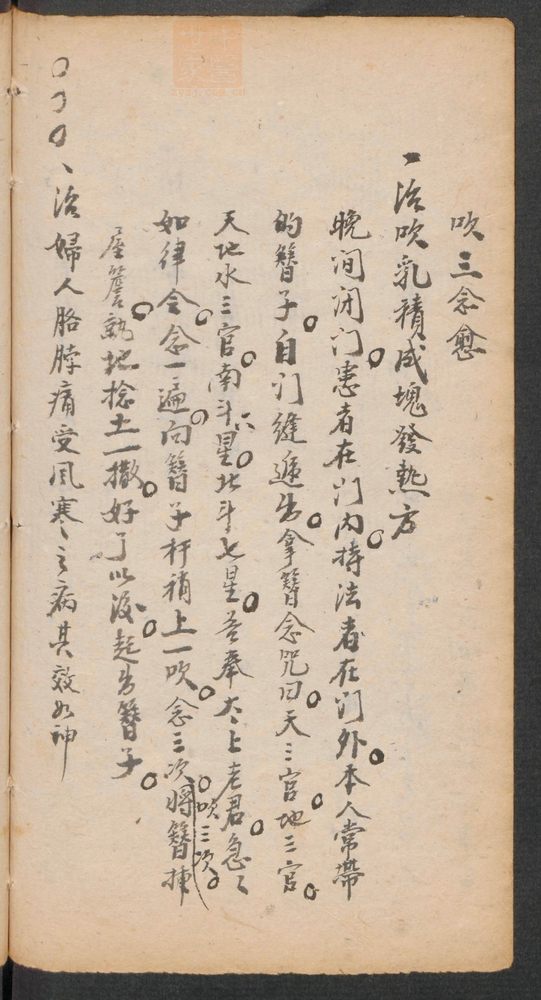 吹三念愈
一治吹乳積成塊發熱方
晚间闭门。患者在门内。持法者在门外。本人常帶
的簪子。自门縫遞出。拿簪念咒曰。天三官。地三官。
天地水三官。南斗六星。北斗七星。吾奉太上老君。急々
如律令。念一遍。向簪子杆稍上一吹。念三次。吹三次。將簪揷
屋簷。就地捻土一撒。好了以後。起出簪子。
、治婦人胳脖痛受風寒之病其效如神